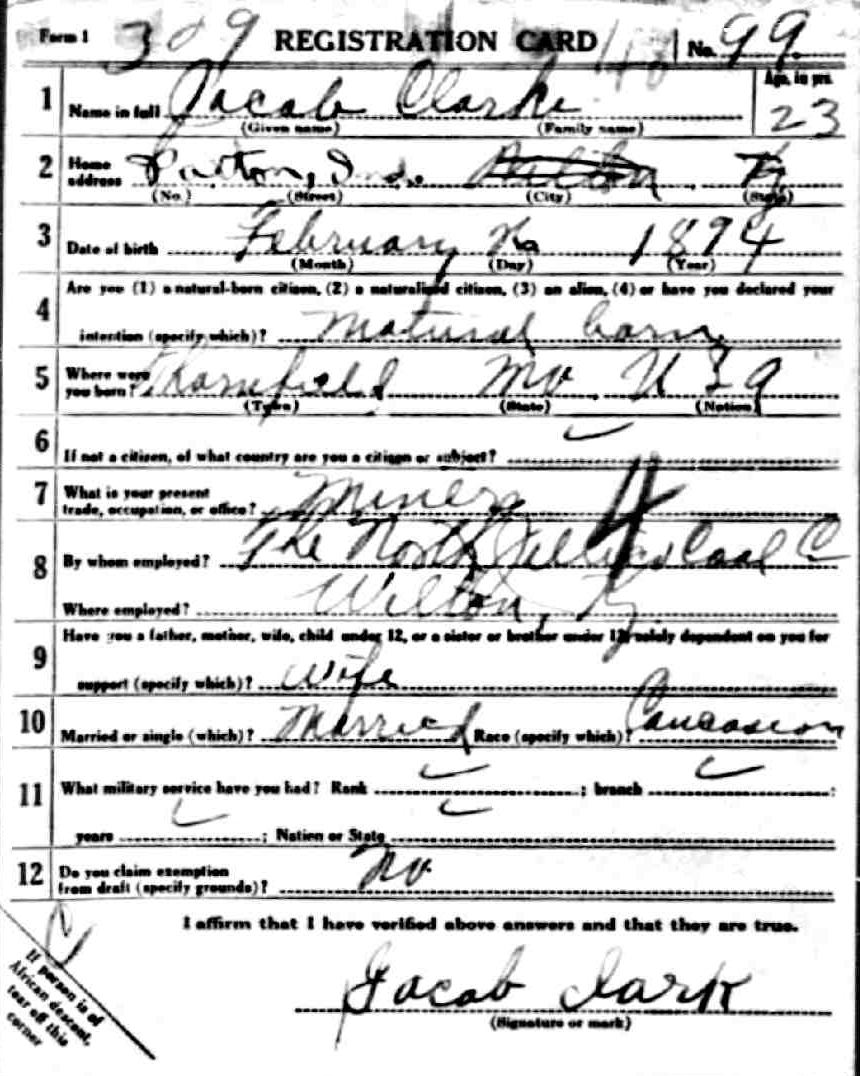 Form 1 309 REGISTRATION CARD No. 99.
1 Name in full Jacob Clarke Age, in yrs. 23
(Given name) (Family name)
2 Home address Patton, Ind. Wilton, Ky
(No.) (Street) (City) (State)
3 Date of birth February No 1894
(Month) (Day) (Year)
4 Are you (1) a natural-born citizen, (2) a naturalized citizen, (3) an alien, (4) or have you declared your
intention (specify which)? Natural born
5 Where were you born? Thornfield Mo U S A
(Town) (State) (Nation)
6 If not a citizen, of what country are you a citizen or subject?
7 What is your present trade, occupation, or office? Miner 4
8 By whom employed? The North Jellico Coal C
Where employed? Wilton, Ky.
9 Have you a father, mother, wife, child under 12, or a sister or brother under 12, solely dependent on you for
support (specify which)? Wife
10 Married or single (which)? Married Race (specify which)? Caucasion
11 What military service have you had? Rank ; branch ;
years ; Nation or State
12 Do you claim exemption from draft (specify grounds)? No
I affirm that I have verified above answers and that they are true.
Jacob Clark
(Signature or mark)
If person is of
African descent,
tear off this
corner